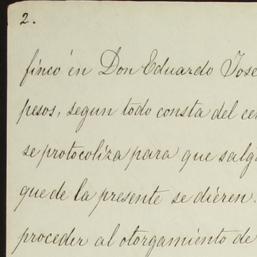 2.
fincó en Don Eduardo José
pesos, segun todo consta del cer
se protocoliza para que salg
que de la presente se dieren.
proceder al otorgamiento de